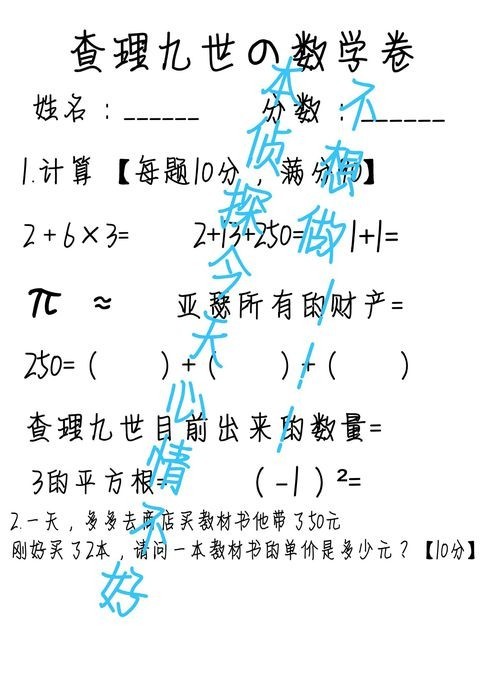 查理九世の数学卷
姓名：______ 分数：______
1.计算【每题10分，满分90】
2+6×3= 2+13+250= 1+1=
π ≈ 亚瑟所有的财产=
250=（ ）+（ ）+（ ）
查理九世目前出来的数量=
3的平方根= （-1）²=
2.一天，多多去商店买教材书他带了50元
刚好买了2本，请问一本教材书的单价是多少元？【10分】
本侦探今天心情不好
不想做！！！